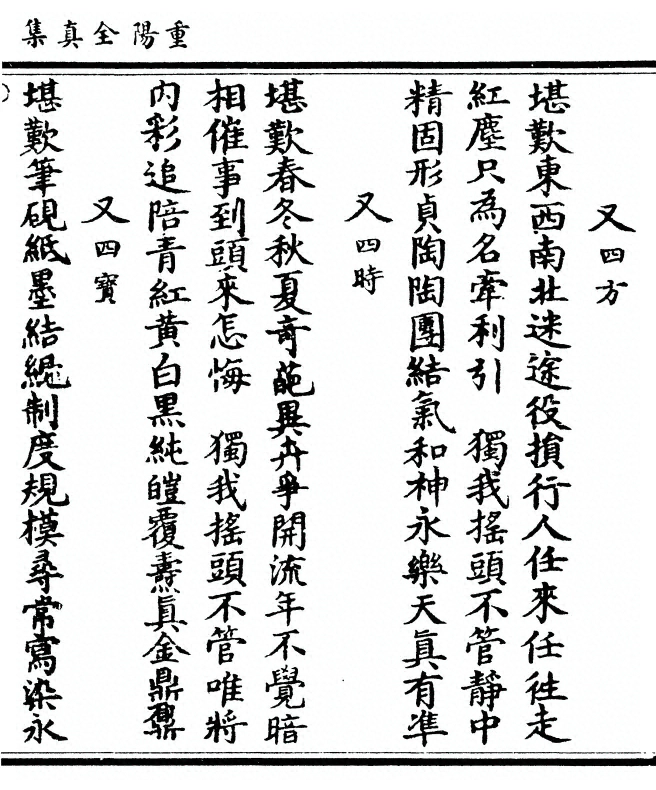 重陽全真集
又四方
堪歎東西南北迷途役損行人任來任徃走
紅塵只為名牽利引　獨我搖頭不管靜中
精固形貞陶陶團結氣和神永樂天真有準
又四時
堪歎春冬秋夏竒葩異卉爭開流年不覺暗
相催事到頭來怎悔　獨我搖頭不管唯將
内彩追陪青紅黃白黑純皚覆燾真金鼎鼐
又四寶
堪歎筆硯紙墨結繩制度規模尋常寫染永